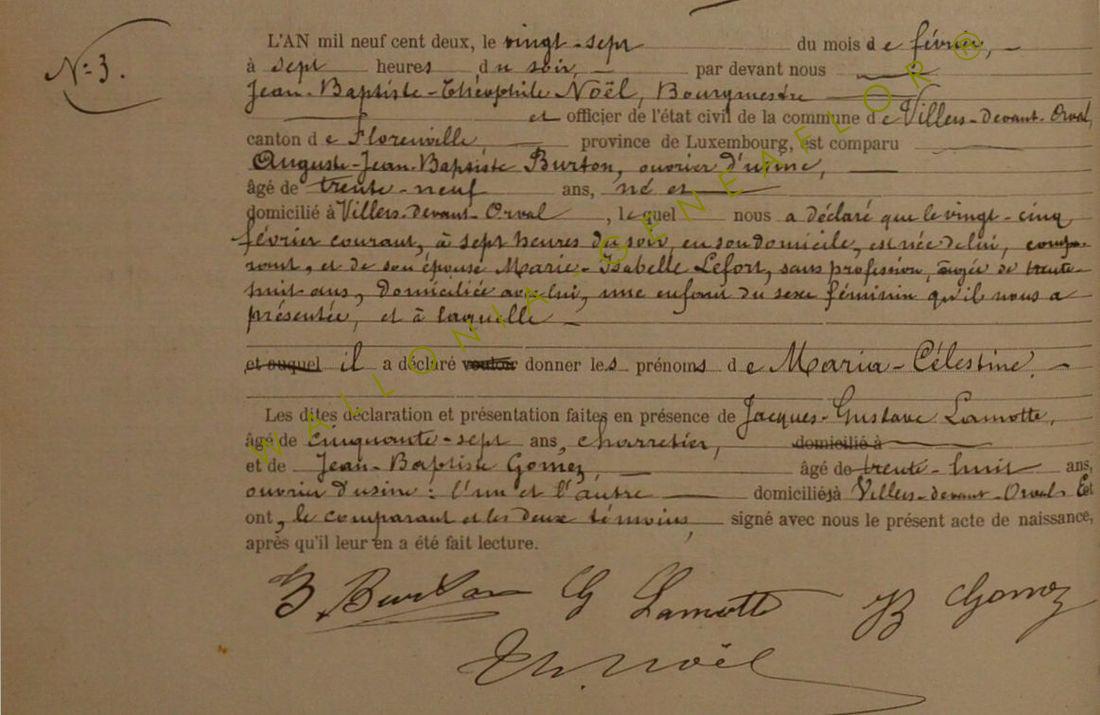 N° 3.
L'AN mil neuf cent deux, le vingt-sept du mois de février,
à sept heures du soir, par devant nous
Jean-Baptiste-Théophile Noël, Bourgmestre
et officier de l'état civil de la commune de Villers-devant-Orval,
canton de Florenville, province de Luxembourg, est comparu
Auguste-Jean-Baptiste Burton, ouvrier d'usine,
âgé de trente-neuf ans, né et
domicilié à Villers-devant-Orval, lequel nous a déclaré que le vingt-cinq
février courant, à sept heures du soir, en son domicile, est née de lui, compa-
rant, et de son épouse Marie-Isabelle Lefort, sans profession, âgée de trente-
huit ans, domiciliée avec lui, une enfant du sexe féminin qu'il nous a
présentée, et à laquelle
et auquel il a déclaré vouloir donner les prénoms de Maria-Célestine.
Les dites déclaration et présentation faites en présence de Jacques-Gustave Lamotte,
âgé de cinquante-sept ans, charretier, domicilié à
et de Jean-Baptiste Gomez, âgé de trente-huit ans,
ouvrier d'usine : l'un et l'autre domiciliés à Villers-devant-Orval. Et
ont, le comparant et les deux témoins, signé avec nous le présent acte de naissance,
après qu'il leur en a été fait lecture.
B. Burton G Lamotte JB Gomez
Th. Noël
WALLONIA GENEAFLOR ®